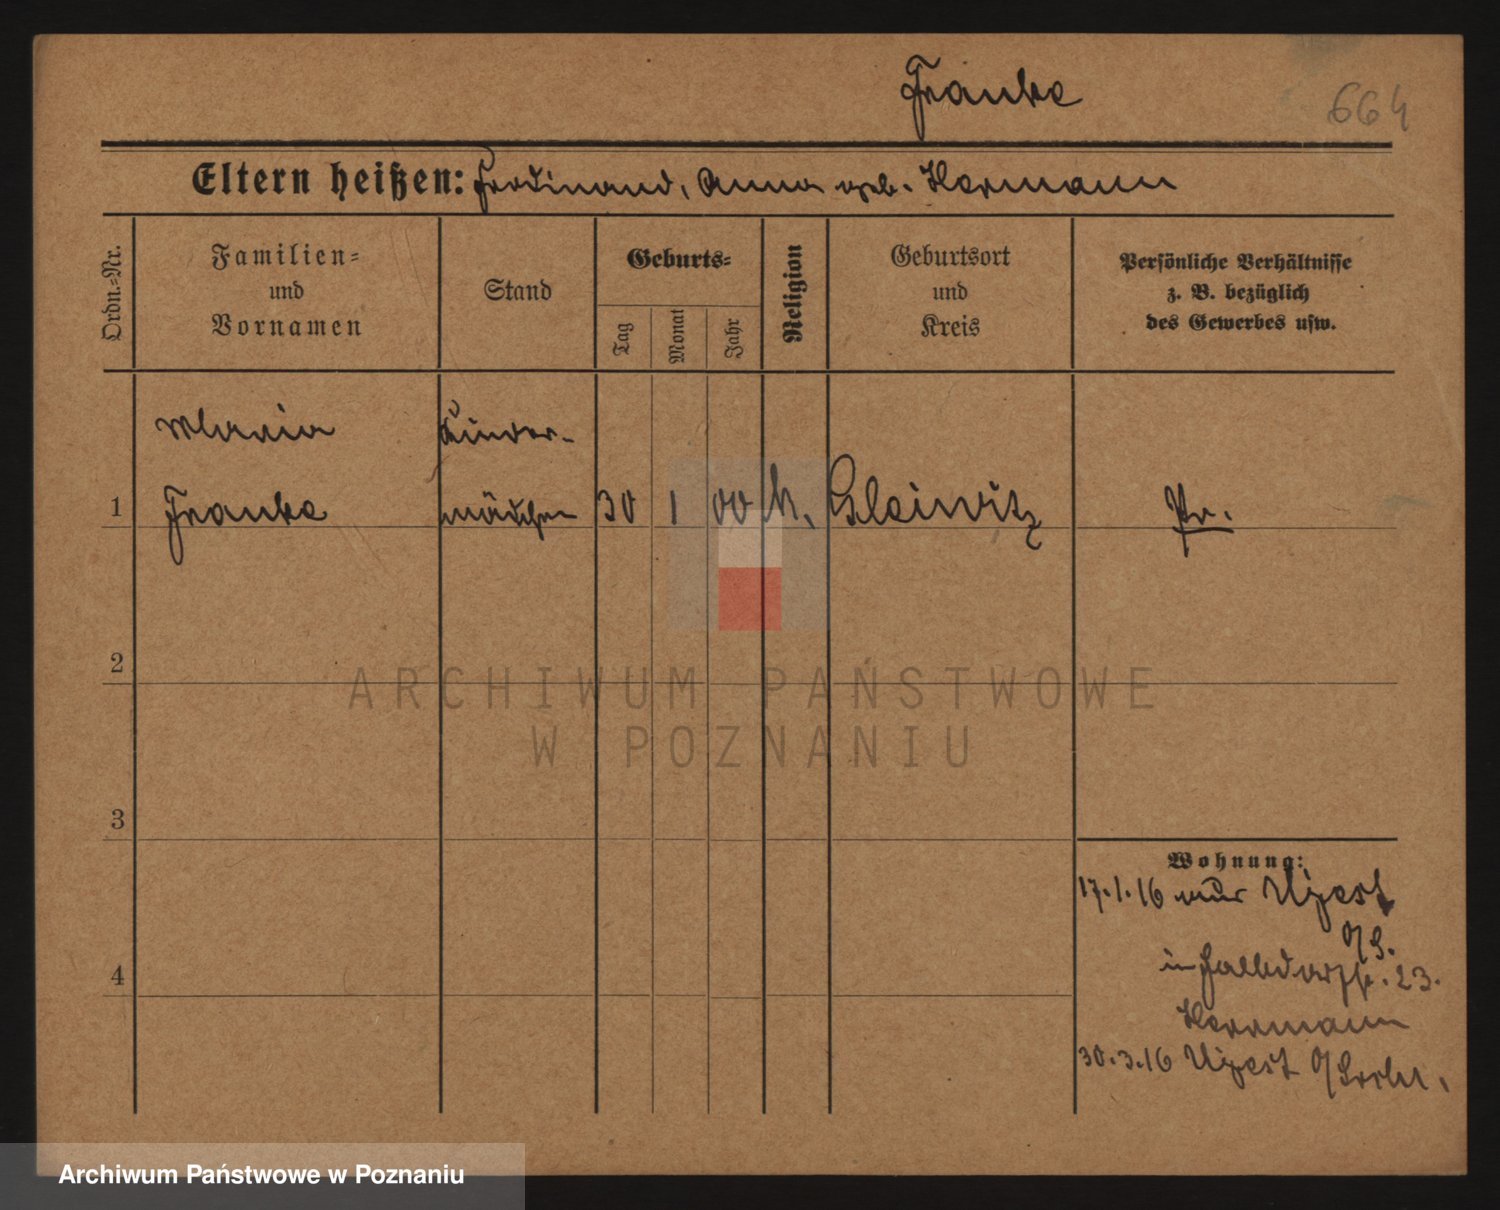 Franke
664
Eltern heißen: Ferdinand, Anna geb. Hermann
Ordn.-Nr.
Familien-
und
Vornamen
Stand
Geburts-
Tag
Monat
Jahr
Religion
Geburtsort
und
Kreis
Persönliche Verhältnisse
z. B. bezüglich
des Gewerbes usw.
Maria
Kinder-
1 Franke mädchen 30 1 00 k. Gleiwitz Pr.
2
ARCHIWUM PAŃSTWOWE
W POZNANIU
3
Wohnung:
17.1.16 aus Ujest
O/S.
in 23.
4
Herrmann
30.3.16 Ujest O/Schl.
Archiwum Państwowe w Poznaniu